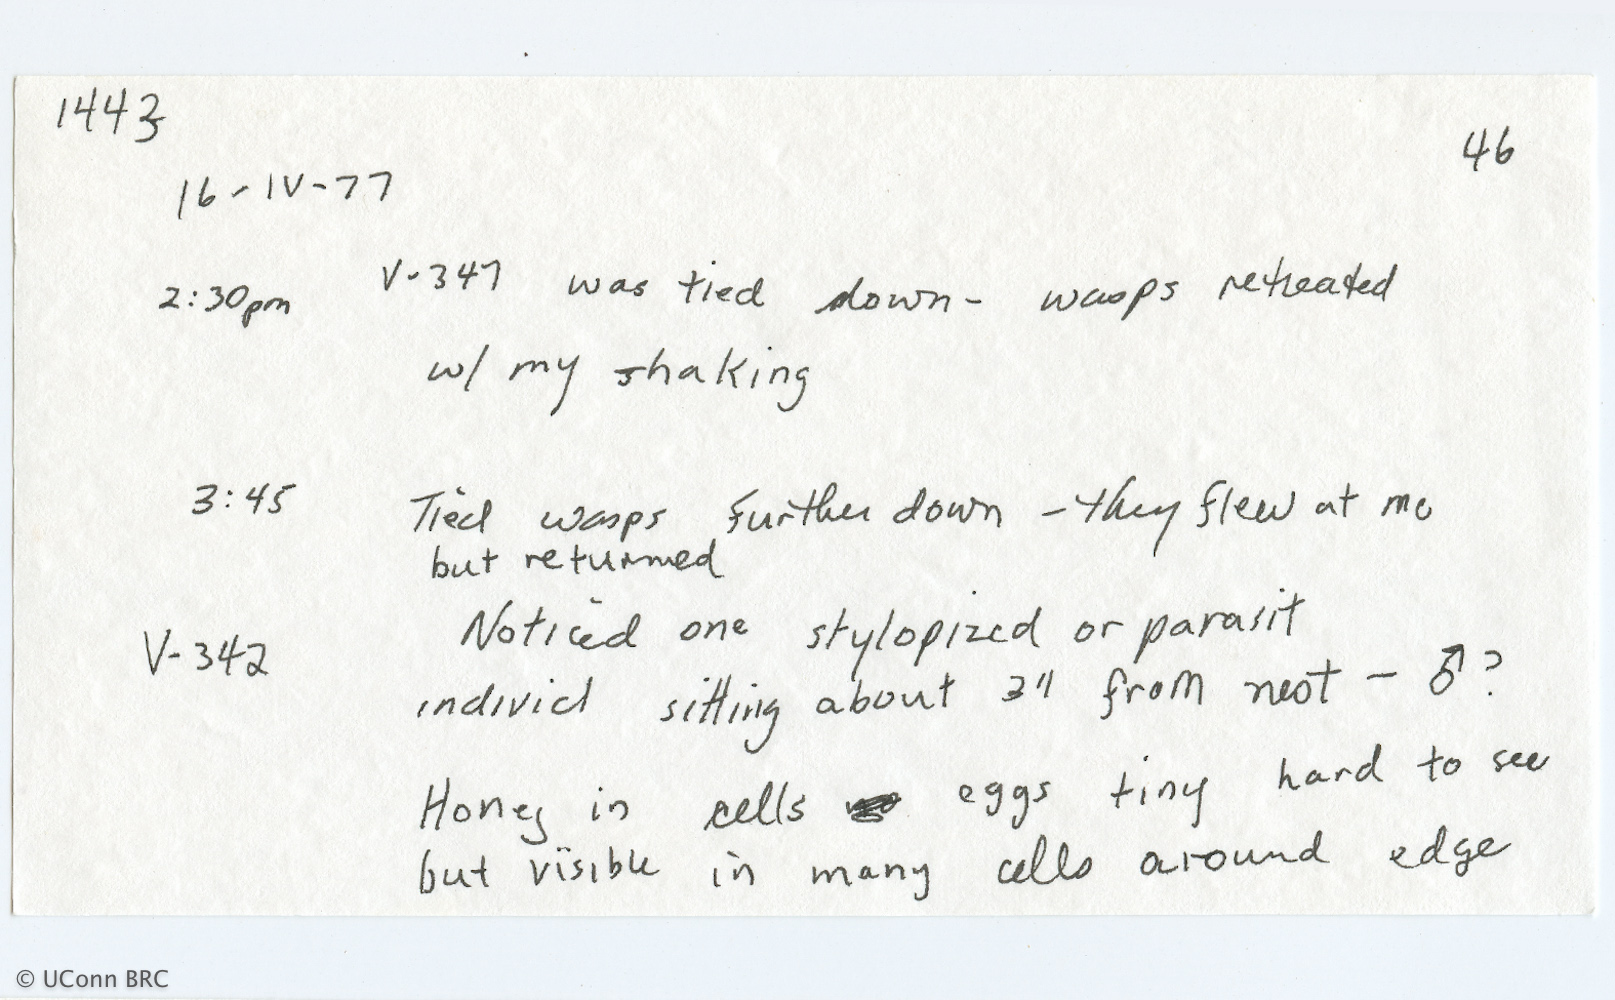 1443
46
16-IV-77
2:30pm V-347 was tied down- wasps retreated
w/ my shaking
3:45 Tied wasps further down - they flew at me
but returned
Noticed one stylopized or parasit
V-342
individ sitting about 3" from nest - ♂?
Honey in cells eggs tiny hard to see
but visible in many cells around edge
© UConn BRC